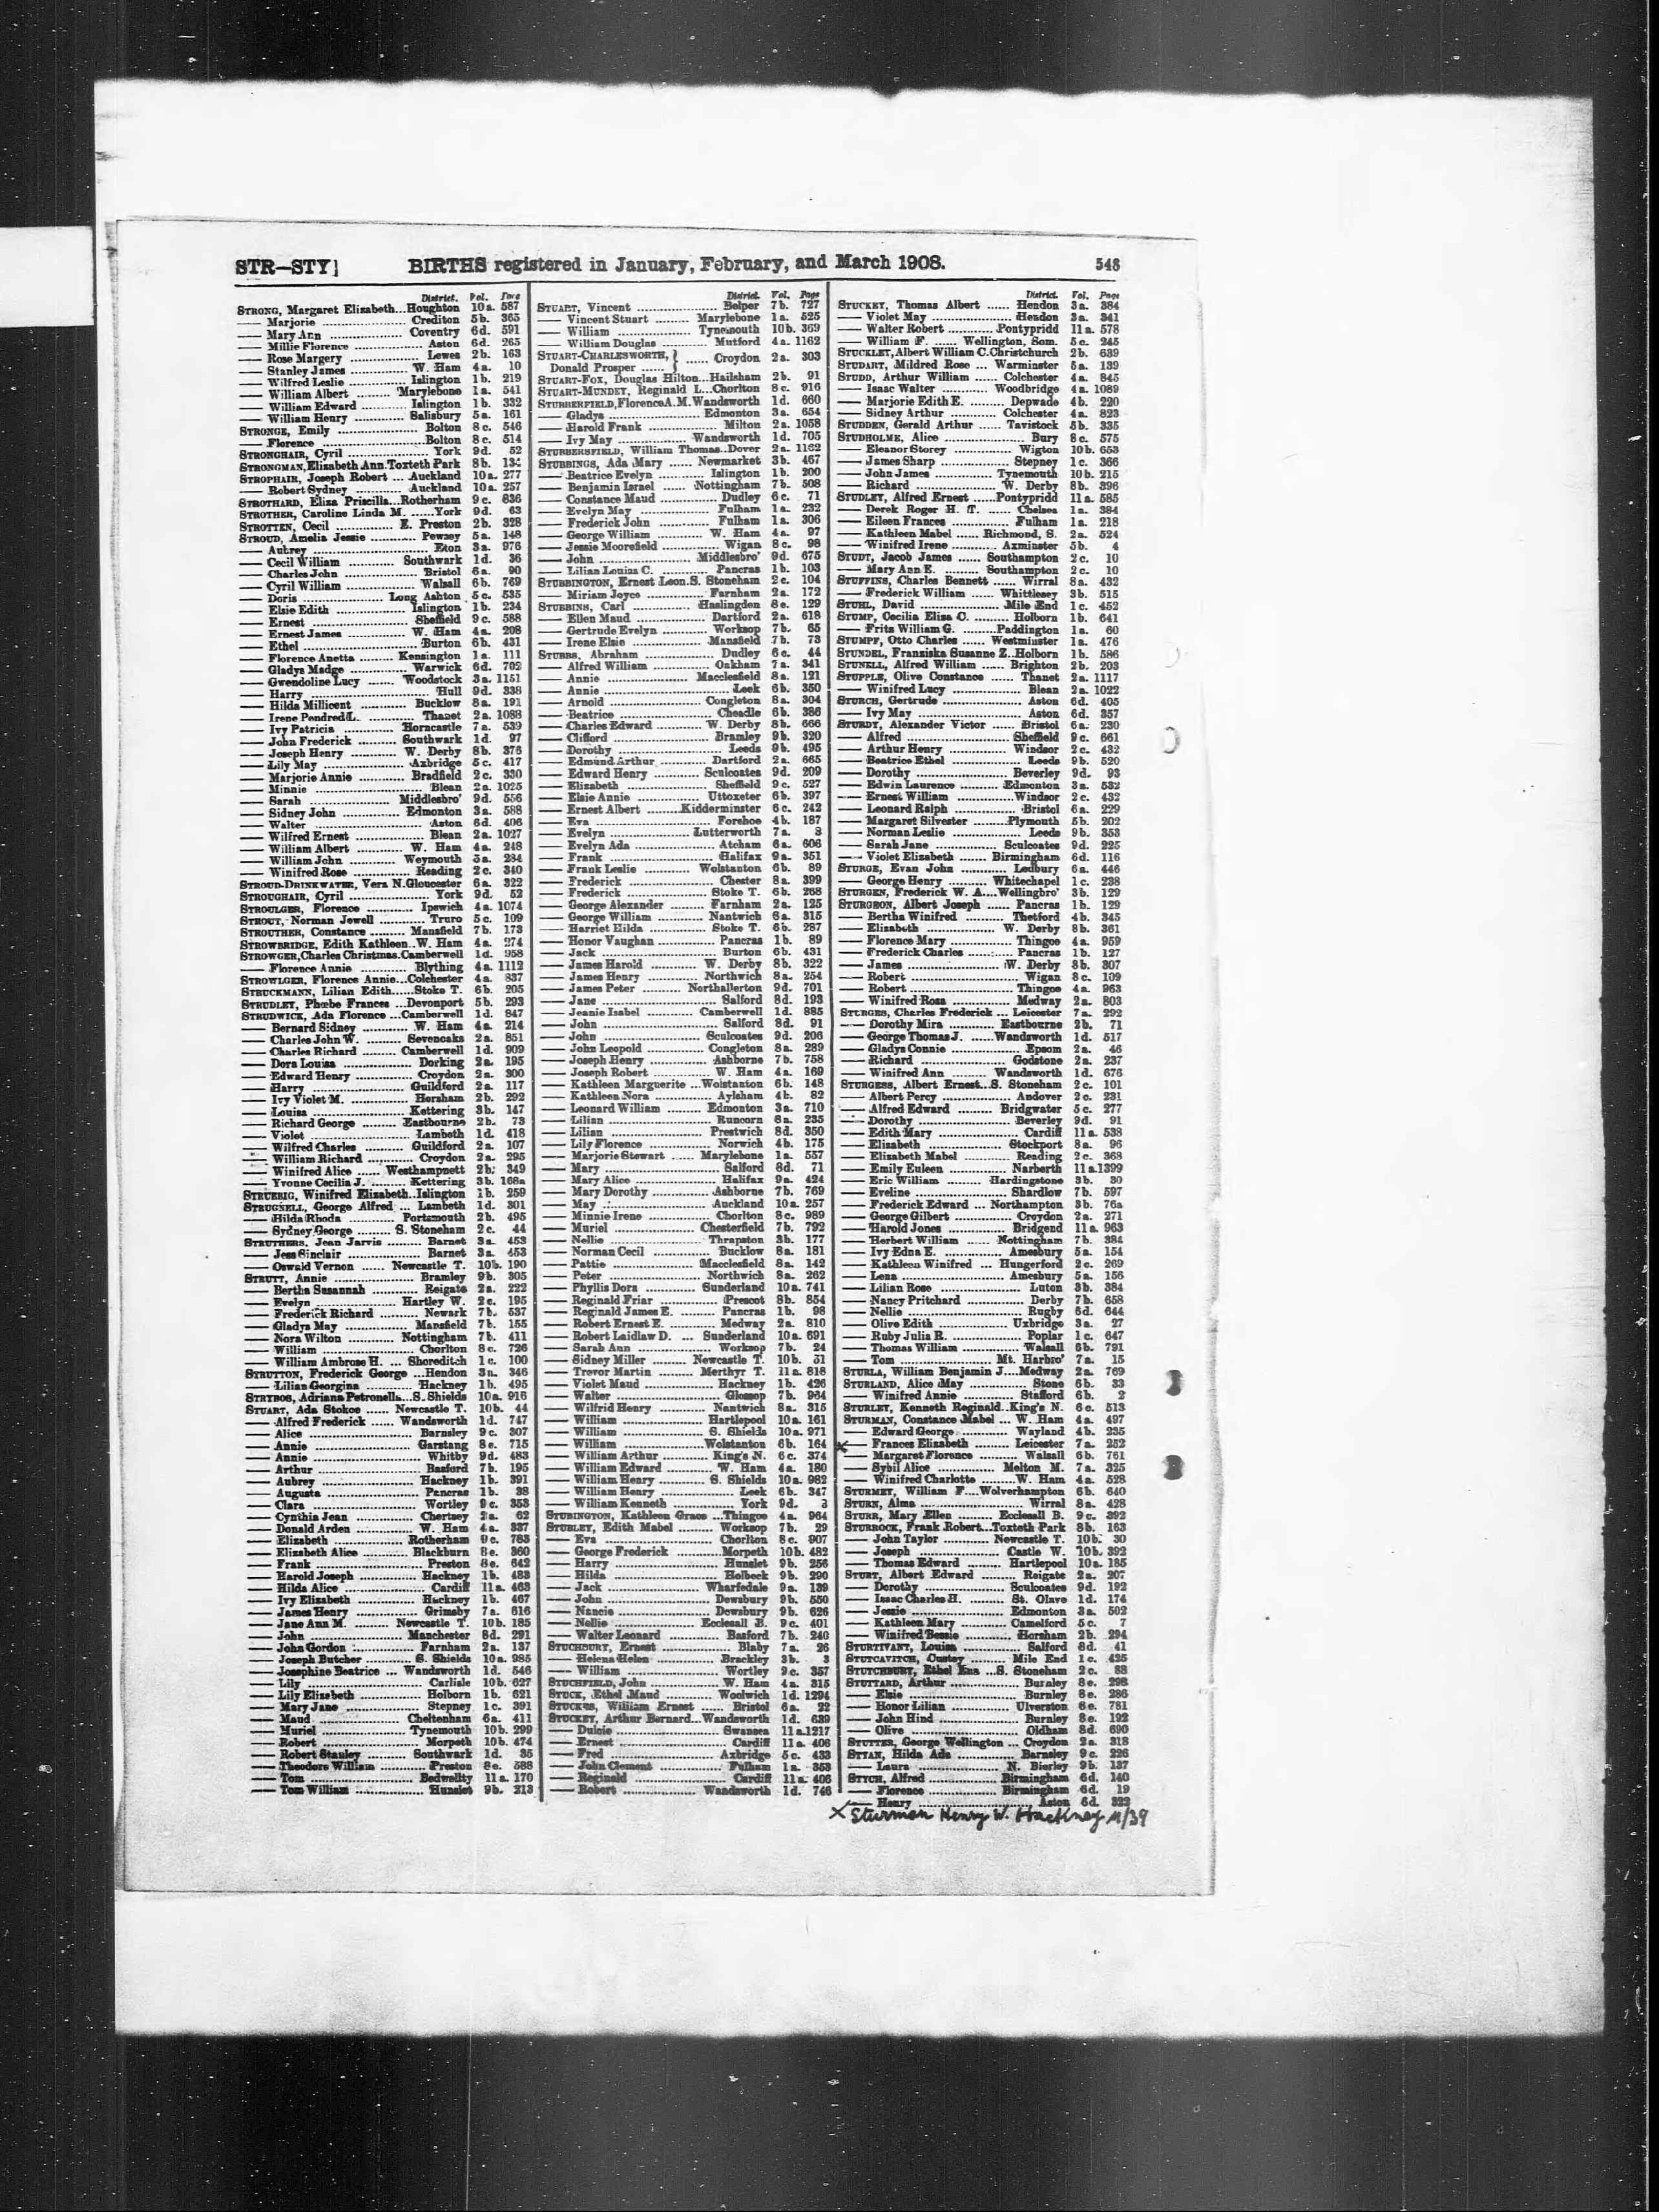 STR—STY]
BIRTHS registered in January, February, and March 1908.
548
District. Vol. Page
STRONG, Margaret Elizabeth...Houghton 10a. 587
—— Marjorie .......... Crediton 5b. 365
—— Mary Ann .......... Coventry 6d. 591
—— Millie Florence .......... Aston 6d. 265
—— Rose Margery .......... Lewes 2b. 163
—— Stanley James .......... W. Ham 4a. 10
—— Wilfred Leslie .......... Islington 1b. 219
—— William Albert .......... Marylebone 1a. 541
—— William Edward .......... Islington 1b. 332
—— William Henry .......... Salisbury 5a. 161
STRONGE, Emily .......... Bolton 8c. 546
—— Florence .......... Bolton 8c. 514
STRONGHAIR, Cyril .......... York 9d. 52
STRONGMAN, Elizabeth Ann. Toxteth Park 8b.
STROPHAIR, Joseph Robert ... Auckland 10a. 277
—— Robert Sydney .......... Auckland 10a. 257
STROTHARD, Eliza Priscilla...Rotherham 9c. 836
STROTHER, Caroline Linda M. ......York 9d. 63
STROTTEN, Cecil .......... E. Preston 2b. 328
STROUD, Amelia Jessie .......... Pewsey 5a. 148
—— Aubrey .......... Eton 3a. 976
—— Cecil William .......... Southwark 1d. 36
—— Charles John .......... Bristol 6a. 90
—— Cyril William .......... Walsall 6b. 769
—— Doris .......... Long Ashton 5c. 535
—— Elsie Edith .......... Islington 1b. 234
—— Ernest .......... Sheffield 9c. 588
—— Ernest James .......... W. Ham 4a. 208
—— Ethel .......... Burton 6b. 431
—— Florence Anetta .......... Kensington 1a. 111
—— Gladys Madge .......... Warwick 6d. 702
—— Gwendoline Lucy ...... Woodstock 3a. 1151
—— Harry .......... Hull 9d. 338
—— Hilda Millicent .......... Bucklow 8a. 191
—— Irene Pendred L. .......... Thanet 2a. 1088
—— Ivy Patricia .......... Horncastle 7a. 539
—— John Frederick .......... Southwark 1d. 97
—— Joseph Henry .......... W. Derby 8b. 376
—— Lily May .......... Axbridge 5c. 417
—— Marjorie Annie .......... Bradfield 2c. 330
—— Minnie .......... Blean 2a. 1025
—— Sarah .......... Middlesbro' 9d. 556
—— Sidney John .......... Edmonton 3a. 588
—— Walter .......... Aston 6d. 406
—— Wilfred Ernest .......... Blean 2a. 1027
—— William Albert .......... W. Ham 4a. 248
—— William John .......... Weymouth 5a. 284
—— Winifred Rose .......... Reading 2c. 340
STROUD-DRINKWATER, Vera N.Gloucester 6a. 322
STROUGHAIR, Cyril .......... York 9d. 52
STROULGER, Florence .......... Ipswich 4a. 1074
STROUT, Norman Jewell .......... Truro 5c. 109
STROUTHER, Constance .......... Mansfield 7b. 173
STROWBRIDGE, Edith Kathleen..W. Ham 4a. 274
STROWGER, Charles Christmas.Camberwell 1d. 958
—— Florence Annie .......... Blything 4a. 1112
STROWLGER, Florence Annie...Colchester 4a. 837
STRUCKMANN, Lilian Edith......Stoke T. 6b. 205
STRUDLEY, Phœbe Frances ...Devonport 5b. 293
STRUDWICK, Ada Florence ...Camberwell 1d. 847
—— Bernard Sidney .......... W. Ham 4a. 214
—— Charles John W. .......... Sevenoaks 2a. 851
—— Charles Richard .......... Camberwell 1d. 909
—— Dora Louisa .......... Dorking 2a. 195
—— Edward Henry .......... Croydon 2a. 300
—— Harry .......... Guildford 2a. 117
—— Ivy Violet M. .......... Horsham 2b. 292
—— Louisa .......... Kettering 3b. 147
—— Richard George .......... Eastbourne 2b. 73
—— Violet .......... Lambeth 1d. 418
—— Wilfred Charles .......... Guildford 2a. 107
—— William Richard .......... Croydon 2a. 295
—— Winifred Alice ...... Westhampnett 2b. 349
—— Yvonne Cecilia J. .......... Kettering 3b. 168a
STRUEBIG, Winifred Elizabeth..Islington 1b. 259
STRUGNELL, George Alfred ... Lambeth 1d. 301
—— Hilda Rhoda .......... Portsmouth 2b. 495
—— Sydney George .......... S. Stoneham 2c. 44
STRUTHERS, Jean Jarvis .......... Barnet 3a. 453
—— Jess Sinclair .......... Barnet 3a. 453
—— Oswald Vernon ...... Newcastle T. 10b. 190
STRUTT, Annie .......... Bramley 9b. 305
—— Bertha Susannah .......... Reigate 2a. 222
—— Evelyn .......... Hartley W. 2c. 195
—— Frederick Richard .......... Newark 7b. 537
—— Gladys May .......... Mansfield 7b. 155
—— Nora Wilton .......... Nottingham 7b. 411
—— William .......... Chorlton 8c. 726
—— William Ambrose H. ... Shoreditch 1c. 100
STRUTTON, Frederick George ...Hendon 3a. 346
—— Lilian Georgina .......... Hackney 1b. 495
STRYBOS, Adriana Petronella...S. Shields 10a. 916
STUART, Ada Stokoe ...... Newcastle T. 10b. 44
—— Alfred Frederick ...... Wandsworth 1d. 747
—— Alice .......... Barnsley 9c. 307
—— Annie .......... Garstang 8e. 715
—— Annie .......... Whitby 9d. 483
—— Arthur .......... Basford 7b. 195
—— Aubrey .......... Hackney 1b. 391
—— Augusta .......... Pancras 1b. 38
—— Clara .......... Wortley 9c. 353
—— Cynthia Jean .......... Chertsey 2a. 62
—— Donald Arden .......... W. Ham 4a. 337
—— Elizabeth .......... Rotherham 9c. 783
—— Elizabeth Alice .......... Blackburn 8e. 360
—— Frank .......... Preston 8e. 642
—— Harold Joseph .......... Hackney 1b. 483
—— Hilda Alice .......... Cardiff 11a. 463
—— Ivy Elizabeth .......... Hackney 1b. 467
—— James Henry .......... Grimsby 7a. 616
—— Jane Ann M. .......... Newcastle T. 10b. 185
—— John .......... Manchester 8d. 291
—— John Gordon .......... Farnham 2a. 137
—— Joseph Butcher .......... S. Shields 10a. 985
—— Josephine Beatrice ... Wandsworth 1d. 546
—— Lily .......... Carlisle 10b. 627
—— Lily Elizabeth .......... Holborn 1b. 621
—— Mary Jane .......... Stepney 1c. 391
—— Maud .......... Cheltenham 6a. 411
—— Muriel .......... Tynemouth 10b. 299
—— Robert .......... Morpeth 10b. 474
—— Robert Stanley .......... Southwark 1d. 35
—— Theodore William .......... Preston 8e. 588
—— Tom .......... Bedwellty 11a. 170
—— Tom William .......... Hunslet 9b. 213
District. Vol. Page
STUART, Vincent .......... Belper 7b. 727
—— Vincent Stuart .......... Marylebone 1a. 525
—— William .......... Tynemouth 10b. 369
—— William Douglas .......... Mutford 4a. 1162
STUART-CHARLESWORTH, } ...... Croydon 2a. 303
Donald Prosper ......
STUART-FOX, Douglas Hilton...Hailsham 2b. 91
STUART-MUNDEY, Reginald L...Chorlton 8c. 916
STUBBERFIELD, Florence A.M. Wandsworth 1d. 660
—— Gladys .......... Edmonton 3a. 654
—— Harold Frank .......... Milton 2a. 1058
—— Ivy May .......... Wandsworth 1d. 705
STUBBERSFIELD, William Thomas..Dover 2a. 1162
STUBBINGS, Ada Mary ...... Newmarket 3b. 467
—— Beatrice Evelyn .......... Islington 1b. 200
—— Benjamin Israel .......... Nottingham 7b. 508
—— Constance Maud .......... Dudley 6c. 71
—— Evelyn May .......... Fulham 1a. 232
—— Frederick John .......... Fulham 1a. 306
—— George William .......... W. Ham 4a. 97
—— Jessie Moorefield .......... Wigan 8c. 98
—— John .......... Middlesbro' 9d. 675
—— Lilian Louisa C. .......... Pancras 1b. 103
STUBBINGTON, Ernest Leon.S. Stoneham 2c. 104
—— Miriam Joyce .......... Farnham 2a. 172
STUBBINS, Carl .......... Haslingden 8e. 129
—— Ellen Maud .......... Dartford 2a. 618
—— Gertrude Evelyn .......... Worksop 7b. 65
—— Irene Elsie .......... Mansfield 7b. 73
STUBBS, Abraham .......... Dudley 6c. 44
—— Alfred William .......... Oakham 7a. 341
—— Annie .......... Macclesfield 8a. 121
—— Annie .......... Leek 6b. 350
—— Arnold .......... Congleton 8a. 304
—— Beatrice .......... Cheadle 6b. 386
—— Charles Edward .......... W. Derby 8b. 666
—— Clifford .......... Bramley 9b. 320
—— Dorothy .......... Leeds 9b. 495
—— Edmund Arthur .......... Dartford 2a. 665
—— Edward Henry .......... Sculcoates 9d. 209
—— Elizabeth .......... Sheffield 9c. 527
—— Elsie Annie .......... Uttoxeter 6b. 397
—— Ernest Albert .......... Kidderminster 6c. 242
—— Eva .......... Forehoe 4b. 187
—— Evelyn .......... Lutterworth 7a. 3
—— Evelyn Ada .......... Atcham 6a. 606
—— Frank .......... Halifax 9a. 351
—— Frank Leslie .......... Wolstanton 6b. 89
—— Frederick .......... Chester 8a. 399
—— Frederick .......... Stoke T. 6b. 268
—— George Alexander .......... Farnham 2a. 125
—— George William .......... Nantwich 8a. 315
—— Harriet Hilda .......... Stoke T. 6b. 287
—— Honor Vaughan .......... Pancras 1b. 89
—— Jack .......... Burton 6b. 431
—— James Harold .......... W. Derby 8b. 322
—— James Henry .......... Northwich 8a. 254
—— James Peter .......... Northallerton 9d. 701
—— Jane .......... Salford 8d. 193
—— Jeanie Isabel .......... Camberwell 1d. 885
—— John .......... Salford 8d. 91
—— John .......... Sculcoates 9d. 206
—— John Leopold .......... Congleton 8a. 289
—— Joseph Henry .......... Ashborne 7b. 758
—— Joseph Robert .......... W. Ham 4a. 169
—— Kathleen Marguerite ...Wolstanton 6b. 148
—— Kathleen Nora .......... Aylsham 4b. 82
—— Leonard William .......... Edmonton 3a. 710
—— Lilian .......... Runcorn 8a. 235
—— Lilian .......... Prestwich 8d. 350
—— Lily Florence .......... Norwich 4b. 175
—— Marjorie Stewart ...... Marylebone 1a. 557
—— Mary .......... Salford 8d. 71
—— Mary Alice .......... Halifax 9a. 424
—— Mary Dorothy .......... Ashborne 7b. 769
—— May .......... Auckland 10a. 257
—— Minnie Irene .......... Chorlton 8c. 989
—— Muriel .......... Chesterfield 7b. 792
—— Nellie .......... Thrapston 3b. 177
—— Norman Cecil .......... Bucklow 8a. 181
—— Pattie .......... Macclesfield 8a. 142
—— Peter .......... Northwich 8a. 262
—— Phyllis Dora .......... Sunderland 10a. 741
—— Reginald Friar .......... Prescot 8b. 854
—— Reginald James E. .......... Pancras 1b. 98
—— Robert Ernest E. .......... Medway 2a. 810
—— Robert Laidlaw D. ... Sunderland 10a. 691
—— Sarah Ann .......... Worksop 7b. 24
—— Sidney Miller .......... Newcastle T. 10b. 31
—— Trevor Martin .......... Merthyr T. 11a. 818
—— Violet Maud .......... Hackney 1b. 426
—— Walter .......... Glossop 7b. 964
—— Wilfrid Henry .......... Nantwich 8a. 315
—— William .......... Hartlepool 10a. 161
—— William .......... S. Shields 10a. 971
—— William .......... Wolstanton 6b. 164
—— William Arthur .......... King's N. 6c. 374
—— William Edward .......... W. Ham 4a. 180
—— William Henry .......... S. Shields 10a. 982
—— William Henry .......... Leek 6b. 347
—— William Kenneth .......... York 9d. 3
STUBINGTON, Kathleen Grace ...Thingoe 4a. 964
STUBLEY, Edith Mabel .......... Worksop 7b. 29
—— Eva .......... Chorlton 8c. 907
—— George Frederick .......... Morpeth 10b. 482
—— Harry .......... Hunslet 9b. 256
—— Hilda .......... Holbeck 9b. 290
—— Jack .......... Wharfedale 9a. 139
—— John .......... Dewsbury 9b. 550
—— Nancie .......... Dewsbury 9b. 626
—— Nellie .......... Ecclesall B. 9c. 401
—— Walter Leonard .......... Basford 7b. 240
STUCHBURY, Ernest .......... Blaby 7a. 26
—— Helena Helen .......... Brackley 3b. 3
—— William .......... Wortley 9c. 357
STUCHFIELD, John .......... W. Ham 4a. 315
STUCK, Ethel Maud .......... Woolwich 1d. 1294
STUCKES, William Ernest ...... Bristol 6a. 22
STUCKEY, Arthur Bernard...Wandsworth 1d. 639
—— Dulcie .......... Swansea 11a. 1217
—— Ernest .......... Cardiff 11a. 406
—— Fred .......... Axbridge 5c. 433
—— John Clement .......... Fulham 1a. 353
—— Reginald .......... Cardiff 11a. 406
—— Robert .......... Wandsworth 1d. 746
District. Vol. Page
STUCKEY, Thomas Albert ...... Hendon 3a. 384
—— Violet May .......... Hendon 3a. 341
—— Walter Robert .......... Pontypridd 11a. 578
—— William F. ...... Wellington, Som. 5c. 245
STUCKLEY, Albert William C.Christchurch 2b. 639
STUDART, Mildred Rose ... Warminster 5a. 139
STUDD, Arthur William ...... Colchester 4a. 845
—— Isaac Walter .......... Woodbridge 4a. 1089
—— Marjorie Edith E. .......... Depwade 4b. 220
—— Sidney Arthur .......... Colchester 4a. 823
STUDDEN, Gerald Arthur ...... Tavistock 5b. 335
STUDHOLME, Alice .......... Bury 8c. 575
—— Eleanor Storey .......... Wigton 10b. 653
—— James Sharp .......... Stepney 1c. 366
—— John James .......... Tynemouth 10b. 215
—— Richard .......... W. Derby 8b. 396
STUDLEY, Alfred Ernest ......Pontypridd 11a. 585
—— Derek Roger H. T. ...... Chelsea 1a. 384
—— Eileen Frances .......... Fulham 1a. 218
—— Kathleen Mabel ...... Richmond, S. 2a. 524
—— Winifred Irene .......... Axminster 5b. 4
STUDT, Jacob James ...... Southampton 2c. 10
—— Mary Ann E. .......... Southampton 2c. 10
STUFFINS, Charles Bennett ...... Wirral 8a. 432
—— Frederick William ...... Whittlesey 3b. 515
STUHL, David .......... Mile End 1c. 452
STUMP, Cecilia Eliza C. .......... Holborn 1b. 641
—— Fritz William G. .......... Paddington 1a. 60
STUMPF, Otto Charles ...... Westminster 1a. 476
STUNDEL, Franziska Susanne Z..Holborn 1b. 586
STUNELL, Alfred William ...... Brighton 2b. 203
STUPPLE, Olive Constance ...... Thanet 2a. 1117
—— Winifred Lucy .......... Blean 2a. 1022
STURCH, Gertrude .......... Aston 6d. 405
—— Ivy May .......... Aston 6d. 357
STURDY, Alexander Victor ...... Bristol 6a. 230
—— Alfred .......... Sheffield 9c. 661
—— Arthur Henry .......... Windsor 2c. 432
—— Beatrice Ethel .......... Leeds 9b. 520
—— Dorothy .......... Beverley 9d. 93
—— Edwin Laurence .......... Edmonton 3a. 532
—— Ernest William .......... Windsor 2c. 432
—— Leonard Ralph .......... Bristol 6a. 229
—— Margaret Silvester .......... Plymouth 5b. 202
—— Norman Leslie .......... Leeds 9b. 353
—— Sarah Jane .......... Sculcoates 9d. 225
—— Violet Elizabeth ...... Birmingham 6d. 116
STURGE, Evan John .......... Ledbury 6a. 446
—— George Henry .......... Whitechapel 1c. 238
STURGEN, Frederick W. A...Wellingbro' 3b. 129
STURGEON, Albert Joseph ...... Pancras 1b. 129
—— Bertha Winifred .......... Thetford 4b. 345
—— Elizabeth .......... W. Derby 8b. 361
—— Florence Mary .......... Thingoe 4a. 959
—— Frederick Charles .......... Pancras 1b. 127
—— James .......... W. Derby 8b. 307
—— Robert .......... Wigan 8c. 109
—— Robert .......... Thingoe 4a. 963
—— Winifred Rosa .......... Medway 2a. 803
STURGES, Charles Frederick ... Leicester 7a. 292
—— Dorothy Mira .......... Eastbourne 2b. 71
—— George Thomas J. ...... Wandsworth 1d. 517
—— Gladys Connie .......... Epsom 2a. 46
—— Richard .......... Godstone 2a. 237
—— Winifred Ann .......... Wandsworth 1d. 676
STURGESS, Albert Ernest...S. Stoneham 2c. 101
—— Albert Percy .......... Andover 2c. 231
—— Alfred Edward .......... Bridgwater 5c. 277
—— Dorothy .......... Beverley 9d. 91
—— Edith Mary .......... Cardiff 11a. 538
—— Elizabeth .......... Stockport 8a. 96
—— Elizabeth Mabel .......... Reading 2c. 368
—— Emily Euleen .......... Narberth 11a. 1399
—— Eric William .......... Hardingstone 3b. 30
—— Eveline .......... Shardlow 7b. 597
—— Frederick Edward ... Northampton 3b. 76a
—— George Gilbert .......... Croydon 2a. 271
—— Harold Jones .......... Bridgend 11a. 963
—— Herbert William ...... Nottingham 7b. 384
—— Ivy Edna E. .......... Amesbury 5a. 154
—— Kathleen Winifred ... Hungerford 2c. 269
—— Lena .......... Amesbury 5a. 156
—— Lilian Rose .......... Luton 3b. 384
—— Nancy Pritchard .......... Derby 7b. 658
—— Nellie .......... Rugby 6d. 644
—— Olive Edith .......... Uxbridge 3a. 27
—— Ruby Julia R. .......... Poplar 1c. 647
—— Thomas William .......... Walsall 6b. 791
—— Tom .......... Mt. Harbro' 7a. 15
STURLA, William Benjamin J...Medway 2a. 769
STURLAND, Alice May .......... Stone 6b. 33
—— Winifred Annie .......... Stafford 6b. 2
STURLEY, Kenneth Reginald..King's N. 6c. 513
STURMAN, Constance Mabel ... W. Ham 4a. 497
—— Edward George .......... Wayland 4b. 235
X —— Frances Elizabeth .......... Leicester 7a. 252
—— Margaret Florence .......... Walsall 6b. 761
—— Sybil Alice .......... Melton M. 7a. 325
—— Winifred Charlotte .......... W. Ham 4a. 528
STURMEY, William F...Wolverhampton 6b. 640
STURN, Alma .......... Wirral 8a. 428
STURR, Mary Ellen .......... Ecclesall B. 9c. 392
STURROCK, Frank Robert...Toxteth Park 8b. 163
—— John Taylor .......... Newcastle T. 10b. 30
—— Joseph .......... Castle W. 10b. 392
—— Thomas Edward .......... Hartlepool 10a. 185
STURT, Albert Edward .......... Reigate 2a. 207
—— Dorothy .......... Sculcoates 9d. 192
—— Isaac Charles H. .......... St. Olave 1d. 174
—— Jessie .......... Edmonton 3a. 502
—— Kathleen Mary .......... Camelford 5c. 7
—— Winifred Bessie .......... Horsham 2b. 294
STURTIVANT, Louisa .......... Salford 8d. 41
STUTCAVITCH, Custey .......... Mile End 1c. 425
STUTCHBURY, Ethel Ena ...S. Stoneham 2c. 88
STUTTARD, Arthur .......... Burnley 8e. 298
—— Elsie .......... Burnley 8e. 286
—— Honor Lilian .......... Ulverston 8e. 781
—— John Hind .......... Burnley 8e. 192
—— Olive .......... Oldham 8d. 690
STUTTER, George Wellington ... Croydon 2a. 318
STYAN, Hilda Ada .......... Barnsley 9c. 226
—— Laura .......... N. Bierley 9b. 137
STYCH, Alfred .......... Birmingham 6d. 140
—— Florence .......... Birmingham 6d. 19
—— Henry .......... Aston 6d. 322
X Sturman Henry W. Hackney M/39